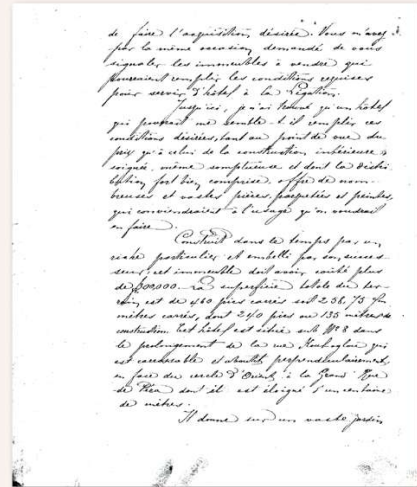 de faire l'acquisition désirée. Vous m'avez
par la même occasion demandé de vous
signaler les immeubles à vendre qui
pourraient remplir les conditions requises
pour servir d'hôtel à la Légation.
Jusqu'ici, j'ai trouvé qu'un hôtel
qui pourrait me semble-t-il remplir ces
conditions désirées, tant au point de vue du
prix qu'à celui de la construction intérieure
soignée, même somptueuse et dont la distri
bution fort bien comprise, offre de nom-
breuses et vastes pièces, parquetées et peintes,
qui conviendraient à l'usage qu'on voudrait
en faire.
Construit dans le temps par un
riche particulier et embelli par son succes
seur, cet immeuble doit avoir coûté plus
de 000. La superficie totale du ter-
rain est de 460 pics carrés soit 256,75
mètres carrés, dont 240 pics ou 135 mètres de
construction. Cet hôtel est situé sub N° 8 dans
le prolongement de la rue qui
est carrossable et aboutit perpendiculairement,
en face du cercle d'Orient, à la Grand' Rue
de Péra dont il est éloigné d'une centaine
de mètres.
Il donne sur un vaste jardin